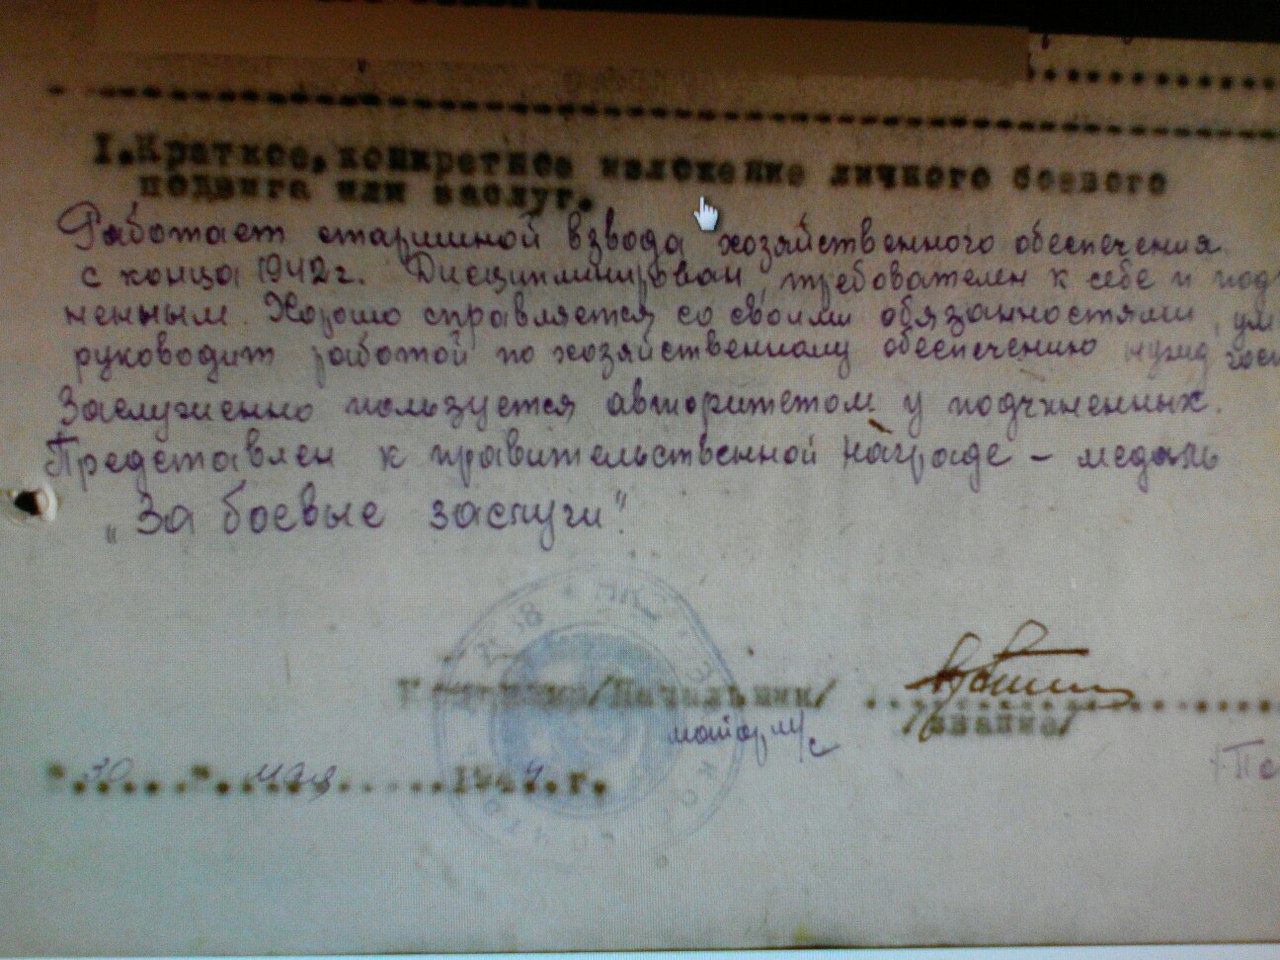 I.Краткое, конкретное изложение личного боевого
подвига или заслуг.
Работает старшиной взвода хозяйственного обеспечения
с конца 1942 г. Дисциплинирован, требователен к себе и под
ненным. Хорошо справляется со своими обязанностями, ум
руководит работой по хозяйственному обеспечению нужд гос
Заслуженно пользуется авторитетом у подчиненных.
Представлен к правительственной награде – медаль
„За боевые заслуги".
Командир/Начальник/
/звание/
майор м/с
"30" мая 1944.г.